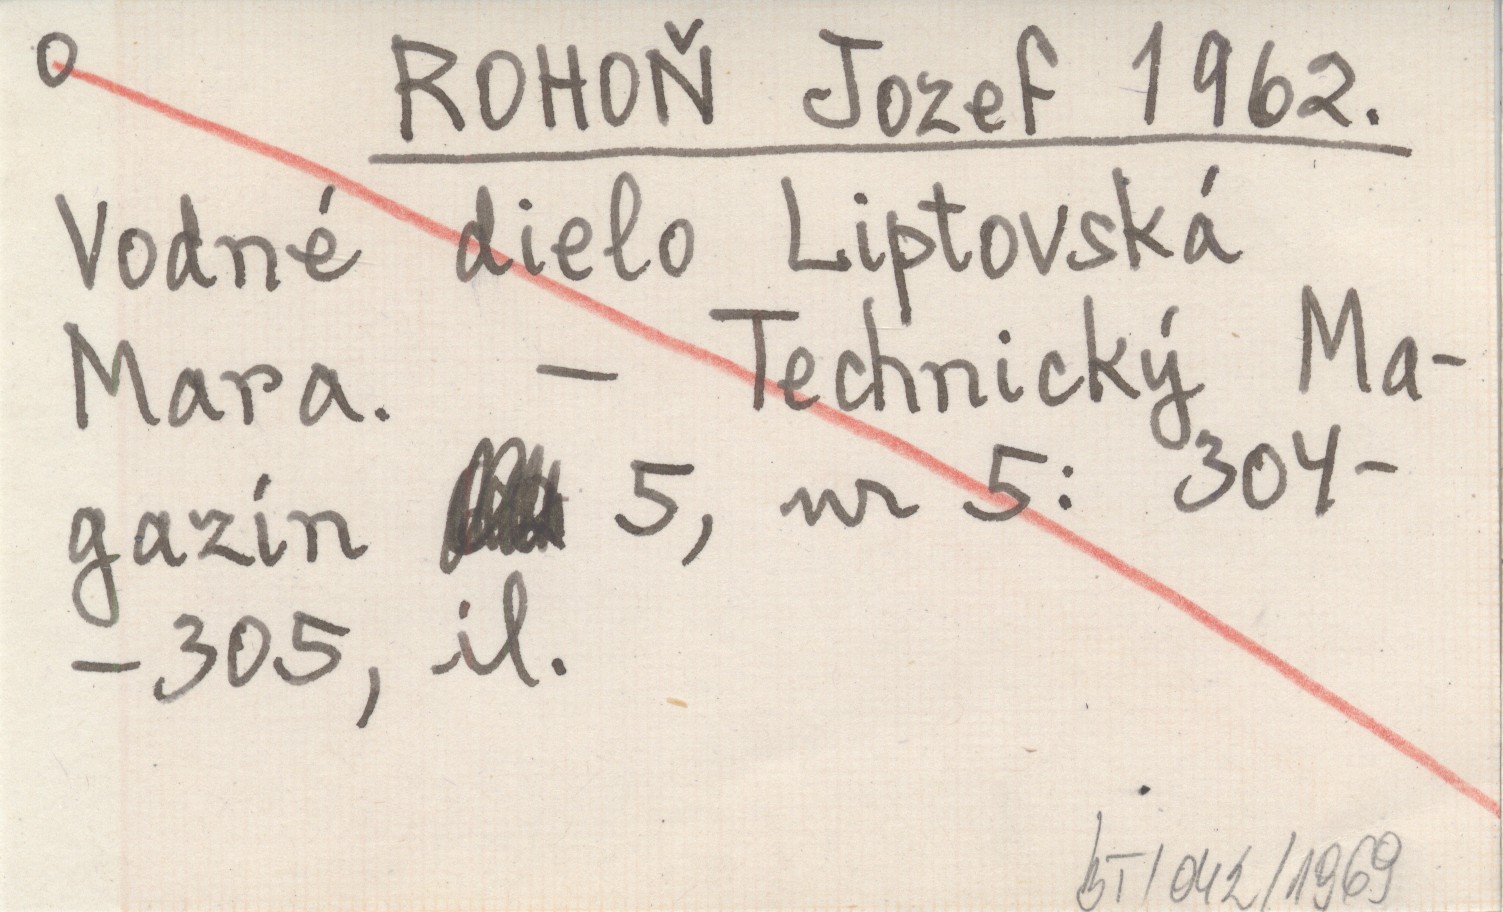 O ROHOŇ Jozef 1962.
Vodné dielo Liptovská
Mara. — Technický Ma-
gazín 5, nr 5: 304-
-305, il.
/042/1969